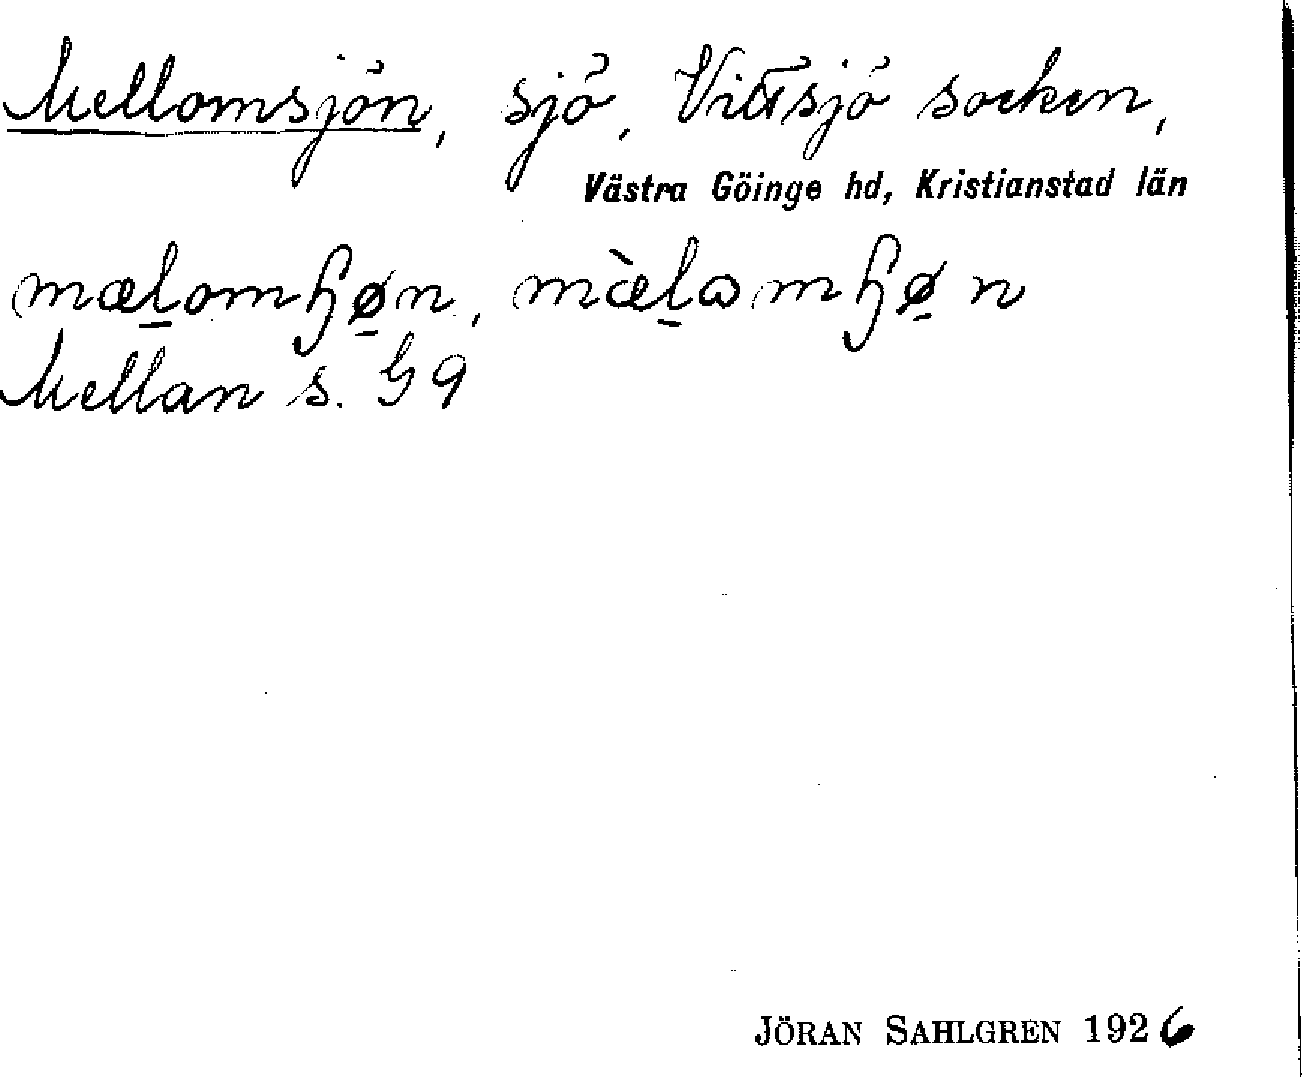 Mellomsjön, sjö, Vittsjö socken,
Västra Göinge hd, Kristianstad län
mæl̠omɧø̠n, mæ̀l̠ɷmɧø̠n
Mellan s. G9
JÖRAN SAHLGREN 1926